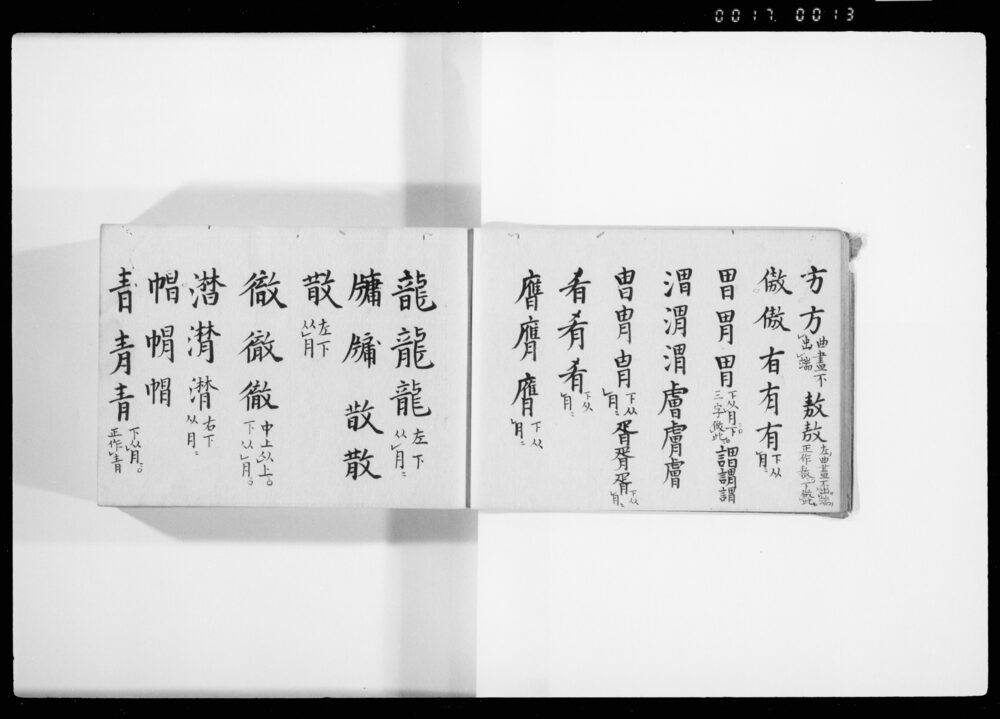 0017 0013
方方曲畫不出端敖敖
傲傲有有有下从月
胃胃胃下从月下三字倣此謂謂謂
渭渭渭膚膚膚
胄胄胄下从月胥胥胥下从月
肴肴肴下从月
膺膺膺下从月
龍龍龍左下从月
牗牗散散
散左下从月
徹徹徹中上从上下从月
潸潸潸右下从月
帽帽帽
青青青下从月正作青